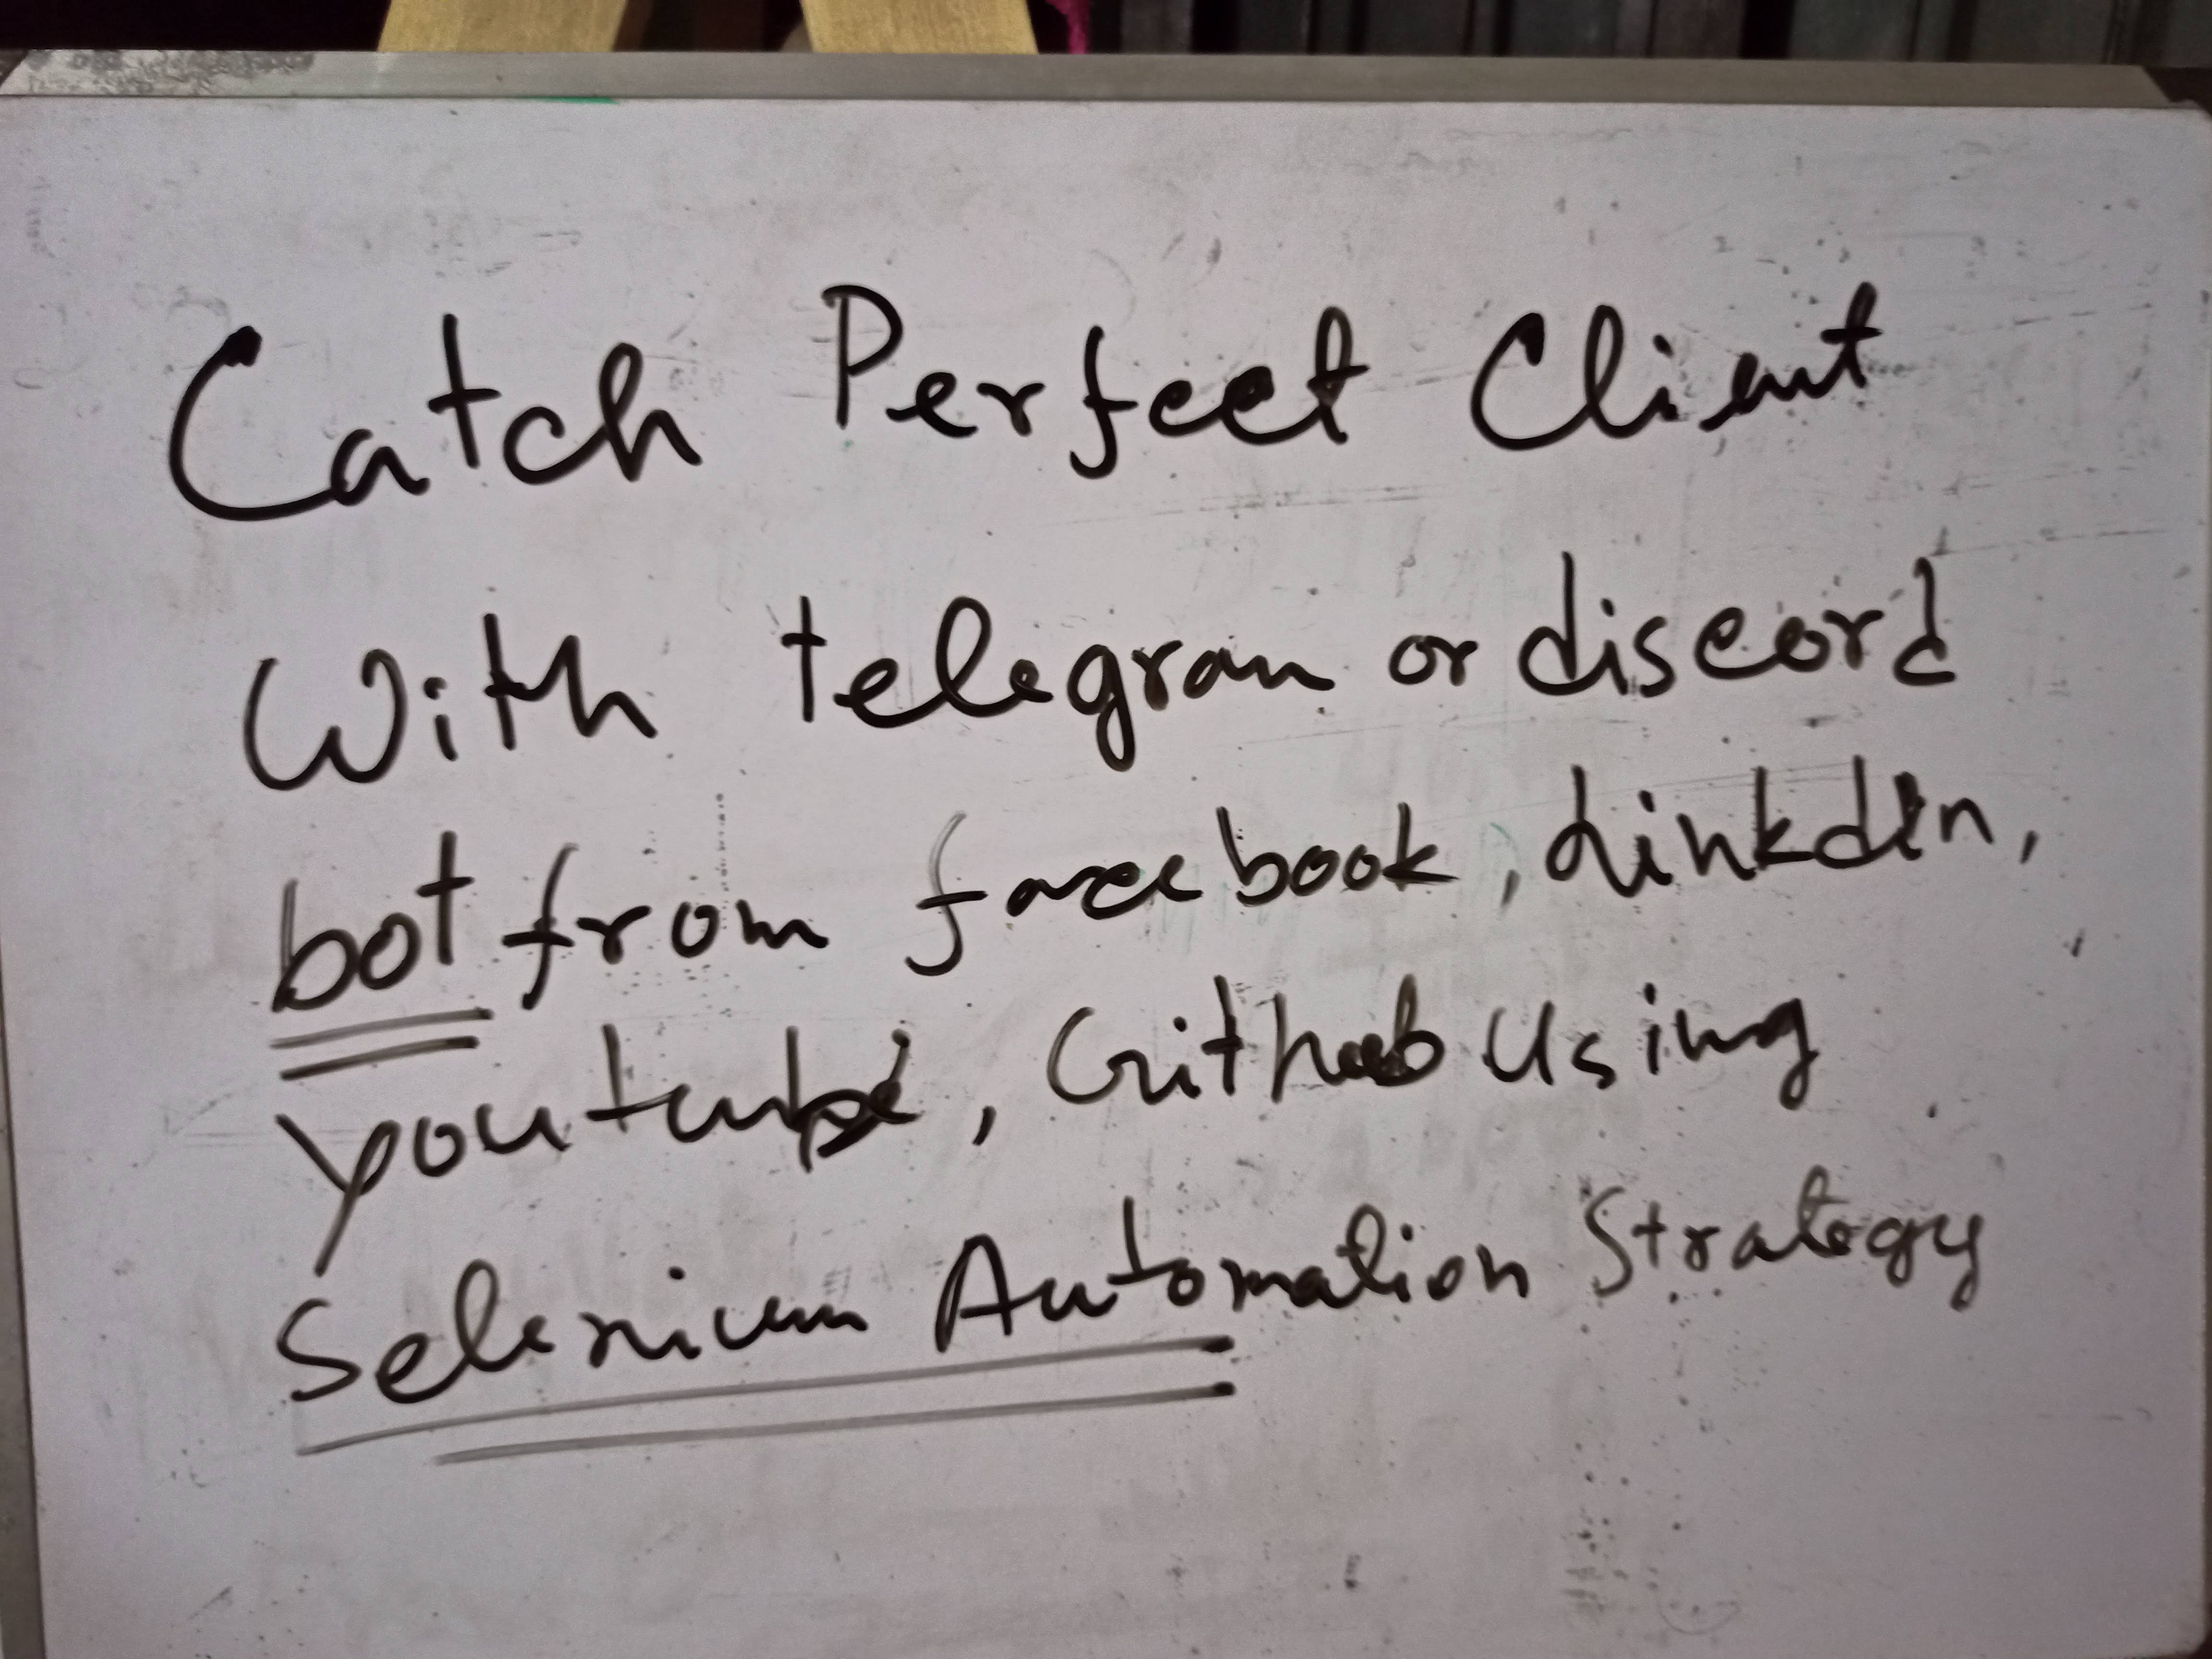 Catch Perfect Client
With telegram or discord
bot from facebook, Linkdln,
youtube, Github Using
Selenium Automation Strategy